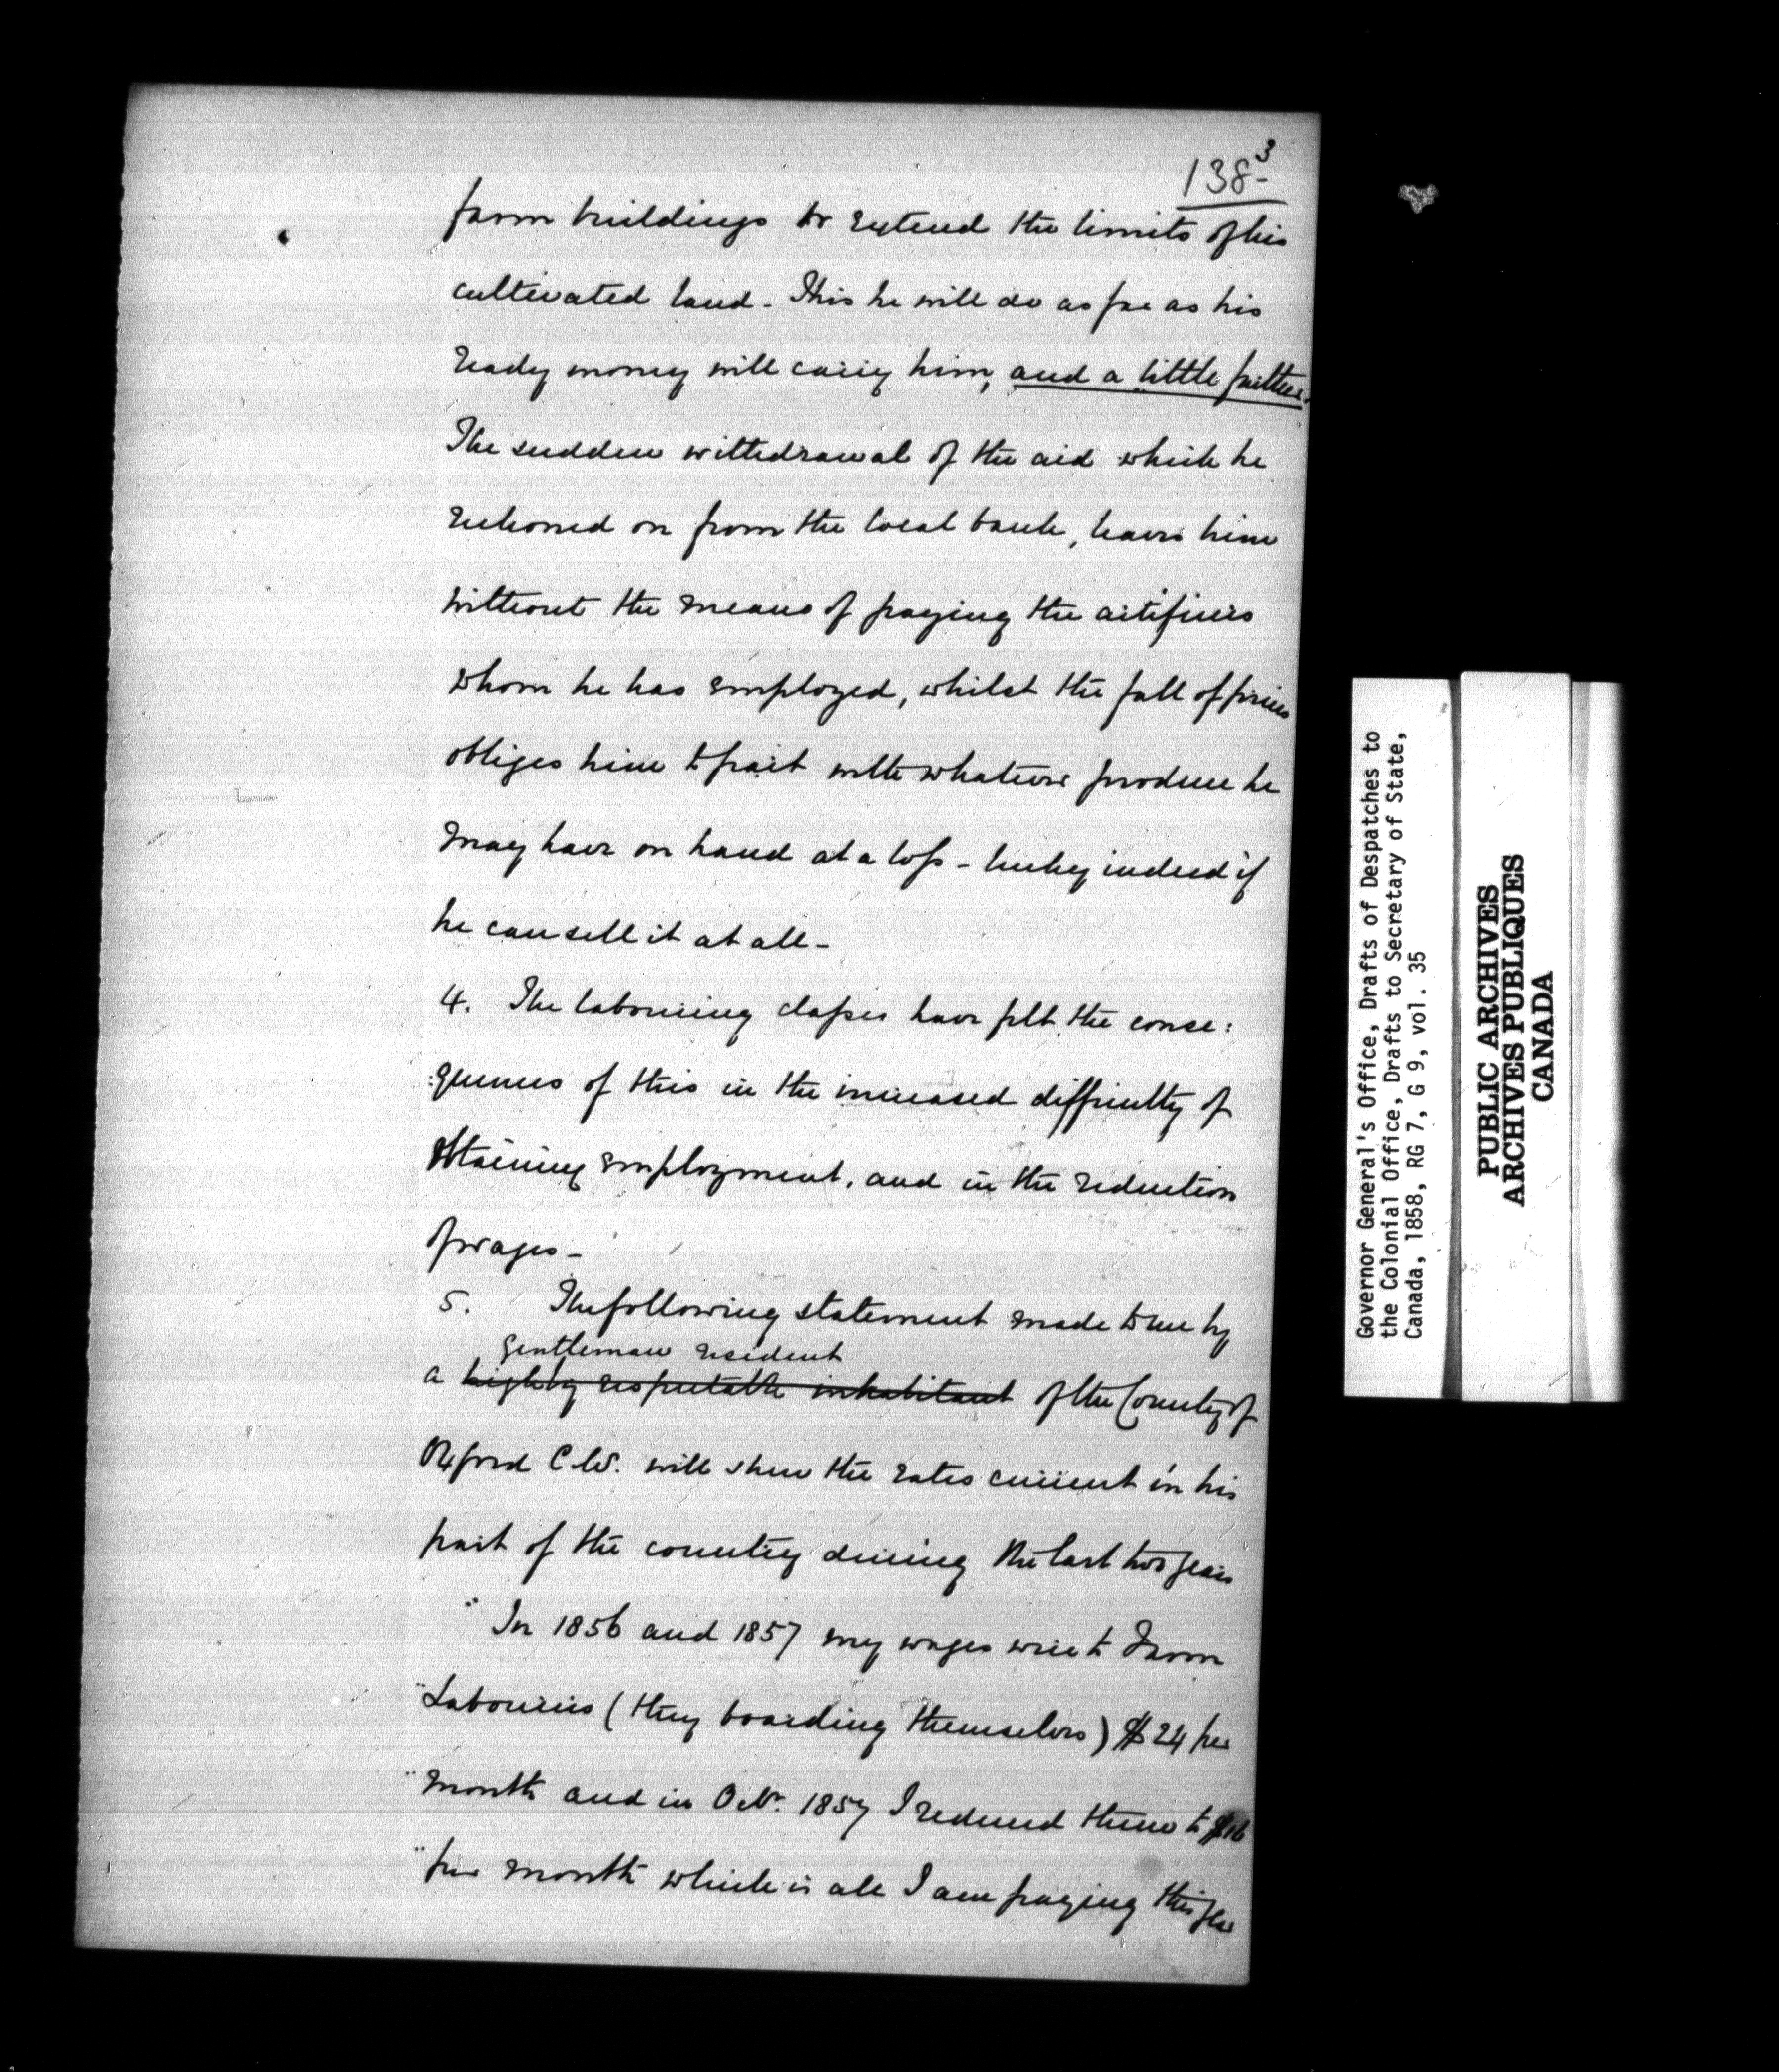 138-3
farm buildings or extend the limits of his
cultivated land - This he will do as far as his
ready money will carry him, and a little further.
The sudden withdrawal of the aid which he
reckoned on from the local bank, leaves him
without the means of paying the artificers
whom he has employed, whilst the fall of prices
obliges him to part with whatever produce he
may have on hand at a loss - lucky indeed if
he can sell it at all -
4. The labouring classes have felt the conse:
:quences of this in the increased difficulty of
obtaining employment, and in the reduction
of wages -
5. The following statement made to me by
gentleman resident
a highly respectable inhabitant of the County of
Oxford C.W. will shew the rates current in his
part of the country during the last two years
"In 1856 and 1857 my wages were to Farm
"Labourers (they boarding themselves) $24 per
"month and in Octr. 1857 I reduced them to $16
"per month which is all I am paying this year
Governor General's Office, Drafts of Despatches to
the Colonial Office, Drafts to Secretary of State,
Canada, 1858, RG 7, G 9, vol. 35
PUBLIC ARCHIVES
ARCHIVES PUBLIQUES
CANADA